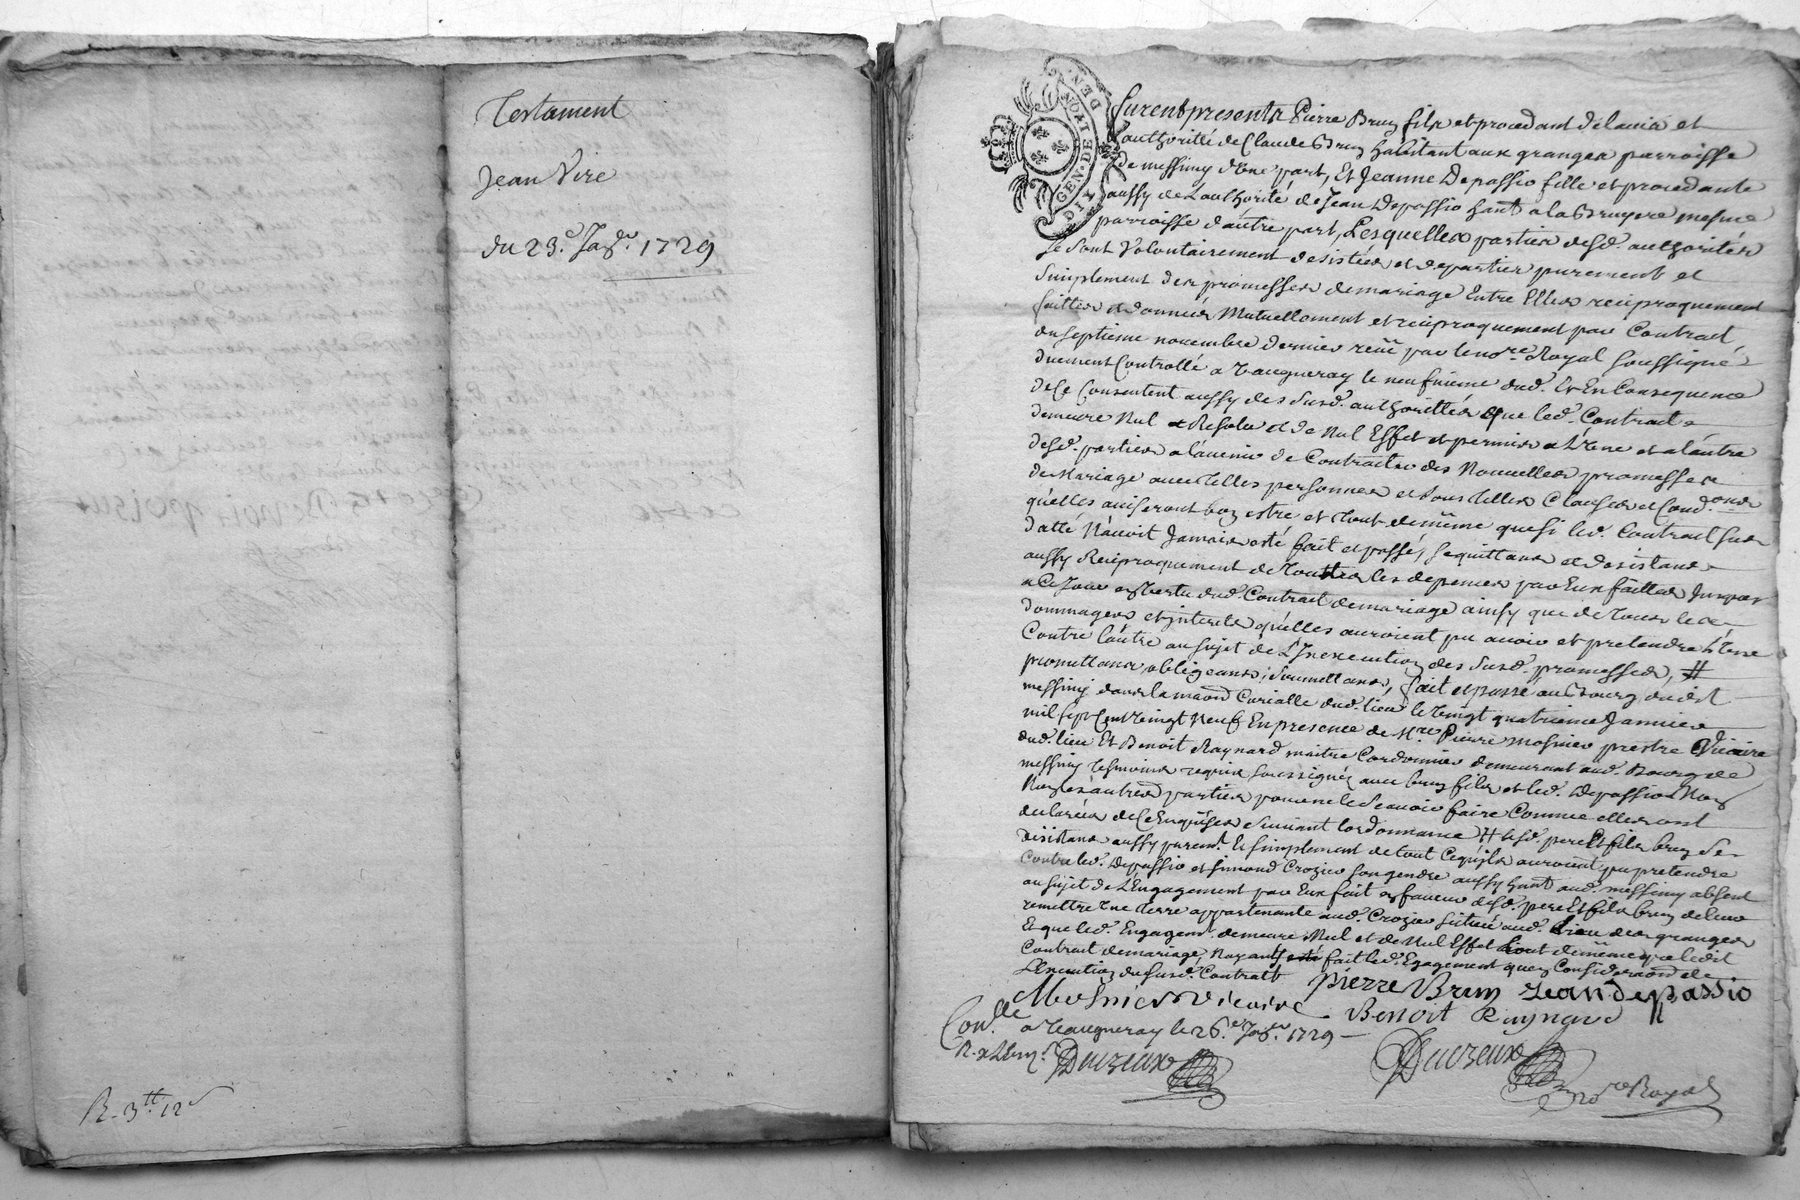 Testament
Jean Vire
du 23.e Jar. 1729
R. 3tt 12s
GEN. DE LYON
Furent presents Pierre Brun fils et procedant de lavis et
authorité de Claude Brun habitant aux granges parroisse
de messimy d'Une part, Et Jeanne Depassio fille et procedante
aussy de Lauthorité de Jean Depassio hant a la Bruyere mesme
parroisse d'autre part, Lesquelles parties desd. authorités
se sont Volontairement desistées et departies purement et
simplement des promesses de mariage Entre Elles reciproquement
faittes et données Mutuellement et reciproquement par Contract
du septieme novembre dernier receu par le no.re Royal soussigné
duement Controllé a Vaugneray le neufvieme dud. Et En Consequence
de Ce Consentent aussy des susd. authorittés que led. Contract
demeure Nul et Resolu et de Nul Effet et permis a L'Une et a lautre
desd. parties a lavenir de Contracter des Nouvelles promesses
de Mariage avec telles personnes et sous telles Clauses et Cond.ons
quelles aviseront bon estre et tout de même que si led. Contract sus
datté N'avoit Jamais esté fait et passé, se quittans et desistans
aussy Reciproquement de touttes les depences par Eux faittes Jusques
a Ce Jour en Vertu dud. Contract de mariage ainsy que de tous les
dommages et interets quelles auroient pu avoir et pretendre L'Une
Contre lautre au sujet de L'Inexecution des susd. promesses, #
promettans, obligeans, soumettans, fait et passé au Bourg dudit
messimy dans la maon Curialle dud. lieu le Vingt quatrieme Janvier
mil sept Cent Vingt Neuf En presence de M.re Pierre Mosnier prestre Vicaire
dud. lieu Et Benoit Raynard maitre Cordonnier demeurant aud. Bourg de
messimy tesmoins requis soussignés avec brun fils et led. Depassio Non
les autres parties pour ne le Scavoir faire Comme elles ont
declarées de Ce Enquises suivant lordonnance # lesd. pere Et fils brun se
desistans aussy purem.t Et simplement de tout Ce quils auroient pu pretendre
Contre led. Depassio et simond Crozier son gendre aussy hant aud. messimy absent
au sujet de L'Engagement par Eux fait en faveur desd. pere Et fils brun de leur
remettre Une terre appartenante aud. Crozier Située aud. Lieu des granges
Et que led. Engagem.t demeure Nul et de Nul Effet tout de même que ledit
Contract de mariage, Nayant esté fait led. Engagement quen Consideraon de
L'Execution du susd. Contract
pierre Brun Jean depassio
Mosnier Vicaire Benoit Raynard
Con.lle a Vaugneray le 26.e Jar. 1729
Duvzeux Duvzeux
no.re Royal